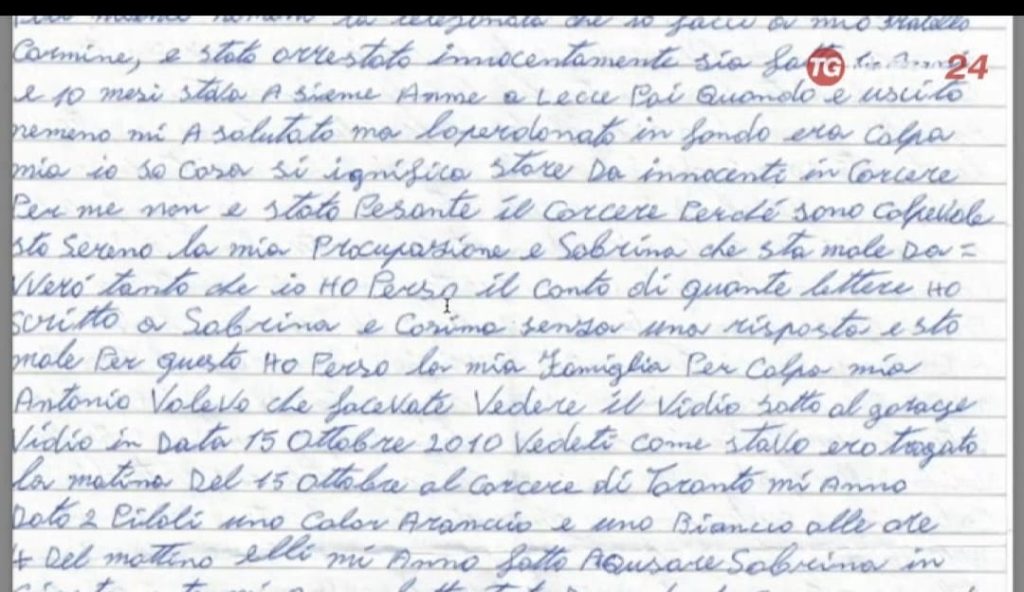 la telefonata che io facci a mio fratello
Carmine, e stato arrestato innocentemente sia fatto
TG 24
e 10 mesi stava A sieme Anme a Lecce Poi Quando e uscito
nemeno mi A salutato ma loperdonato in fondo era Colpa
mia io so Cosa si ignifica stare Da innocenti in Carcere
Per me non e stato Pesante il Carcere Perché sono Colpevole
sto Sereno la mia Procupazione e Sabrina che sta male Da=
VVeró tanto che io HO Perso il Conto di quante lettere HO
Scritto a Sabrina e Cosima senza una risposta e sto
male Per questo HO Perso la mia Famiglia Per Colpa mia
Antonio Volevo che facevate Vedere il Vidio sotto al garage
Vidio in Data 15 Ottobre 2010 Vedeti come stavo ero trogato
la matina Del 15 Ottobre al Carcere di Taranto mi Anno
Dato 2 Piloli uno Color Arancio e uno Biancio alle ore
4 Del mattino elli mi Anno fatto AQusare Sabrina in